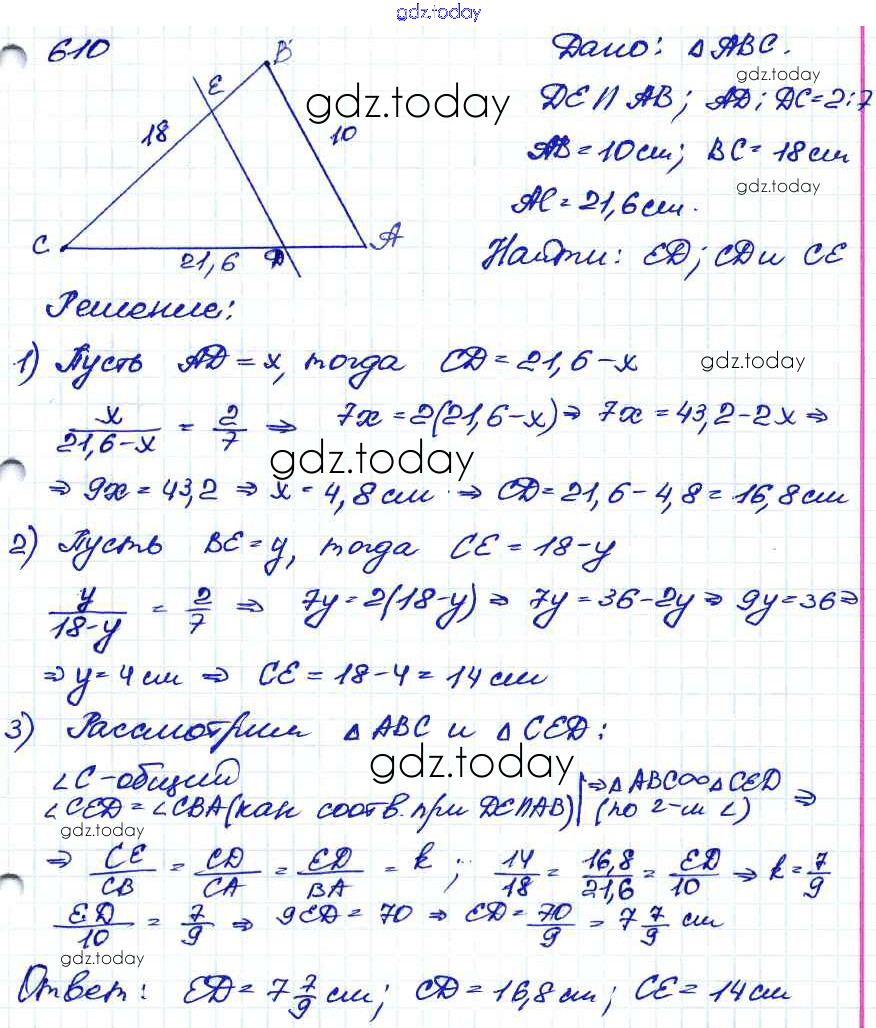 gdz.today
610
B
E
18
10
C
21,6
D
A
gdz.today
Дано: △ABC.
gdz.today
DE ∩ AB; AD; DC=2:7
AB=10см; BC=18см
gdz.today
AC=21,6см.
Найти: ED; CD и CE
Решение:
1) Пусть AD=x, тогда CD=21,6-x
gdz.today
x/(21,6-x) = 2/7 ⇒ 7x=2(21,6-x)⇒ 7x=43,2-2x⇒
gdz.today
⇒ 9x=43,2 ⇒ x=4,8см ⇒ CD=21,6-4,8=16,8см
2) Пусть BE=y, тогда CE=18-y
y/(18-y) = 2/7 ⇒ 7y=2(18-y)⇒ 7y=36-2y⇒ 9y=36⇒
⇒ y=4см ⇒ CE=18-4=14см
3) Рассмотрим △ABC и △CED:
gdz.today
∠C-общий
∠CED=∠CBA(как соотв. при DE∩AB) | ⇒△ABC∞△CED (по 2-м ∠) ⇒
gdz.today
⇒ CE/CB = CD/CA = ED/BA = k; 14/18 = 16,8/21,6 = ED/10 ⇒ k=7/9
ED/10 = 7/9 ⇒ 9ED=70 ⇒ ED=70/9=7 7/9 см
gdz.today
Ответ: ED=7 7/9 см; CD=16,8см; CE=14см